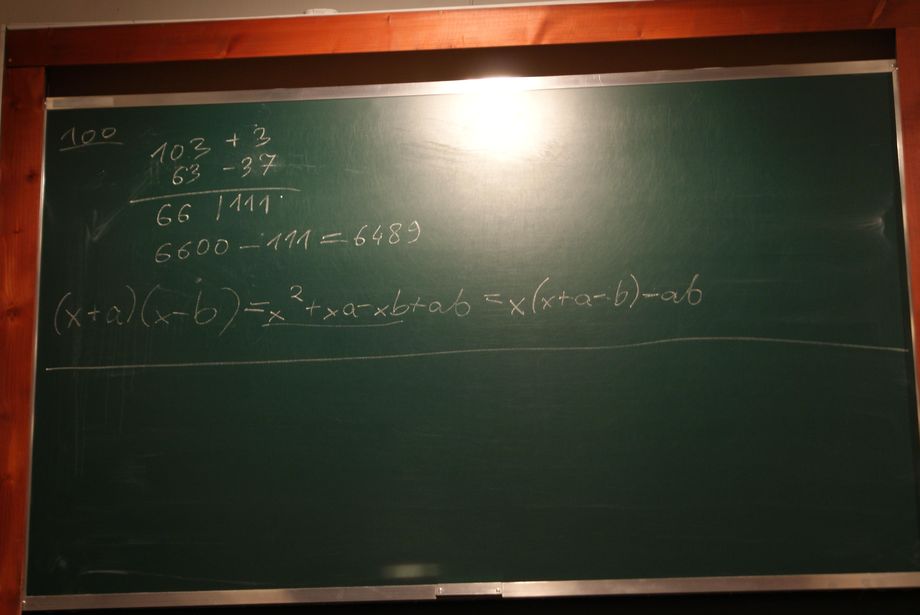 100
103 + 3
63 - 37
66 | 111
6600 - 111 = 6489
(x+a)(x-b) = x² + xa - xb + ab = x(x+a-b) - ab